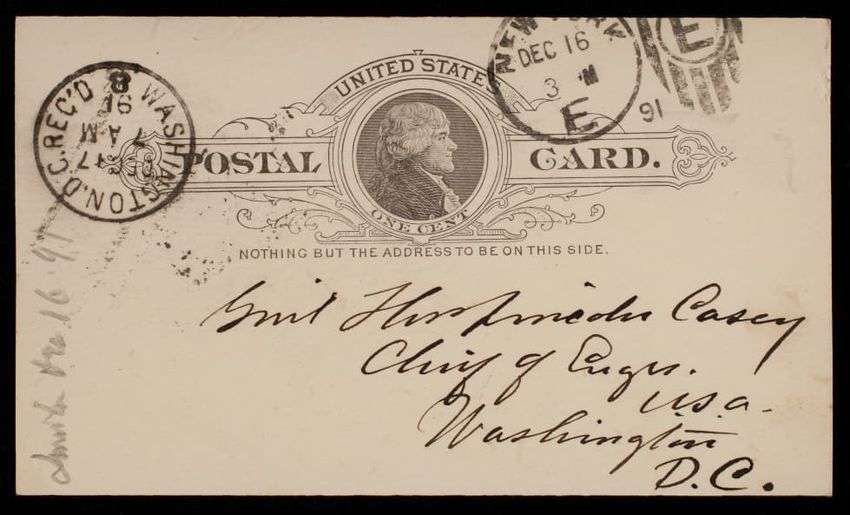 NEW YORK
DEC 16
3 M
E
91
E
WASHINGTON, D.C. REC'D
DEC 17
7 AM
91
8
UNITED STATES
POSTAL CARD.
ONE CENT
NOTHING BUT THE ADDRESS TO BE ON THIS SIDE.
Genl Thos Lincoln Casey
Chief of Engrs.
U.S.A.
Washington
D.C.
Smith Dec. 16. 91